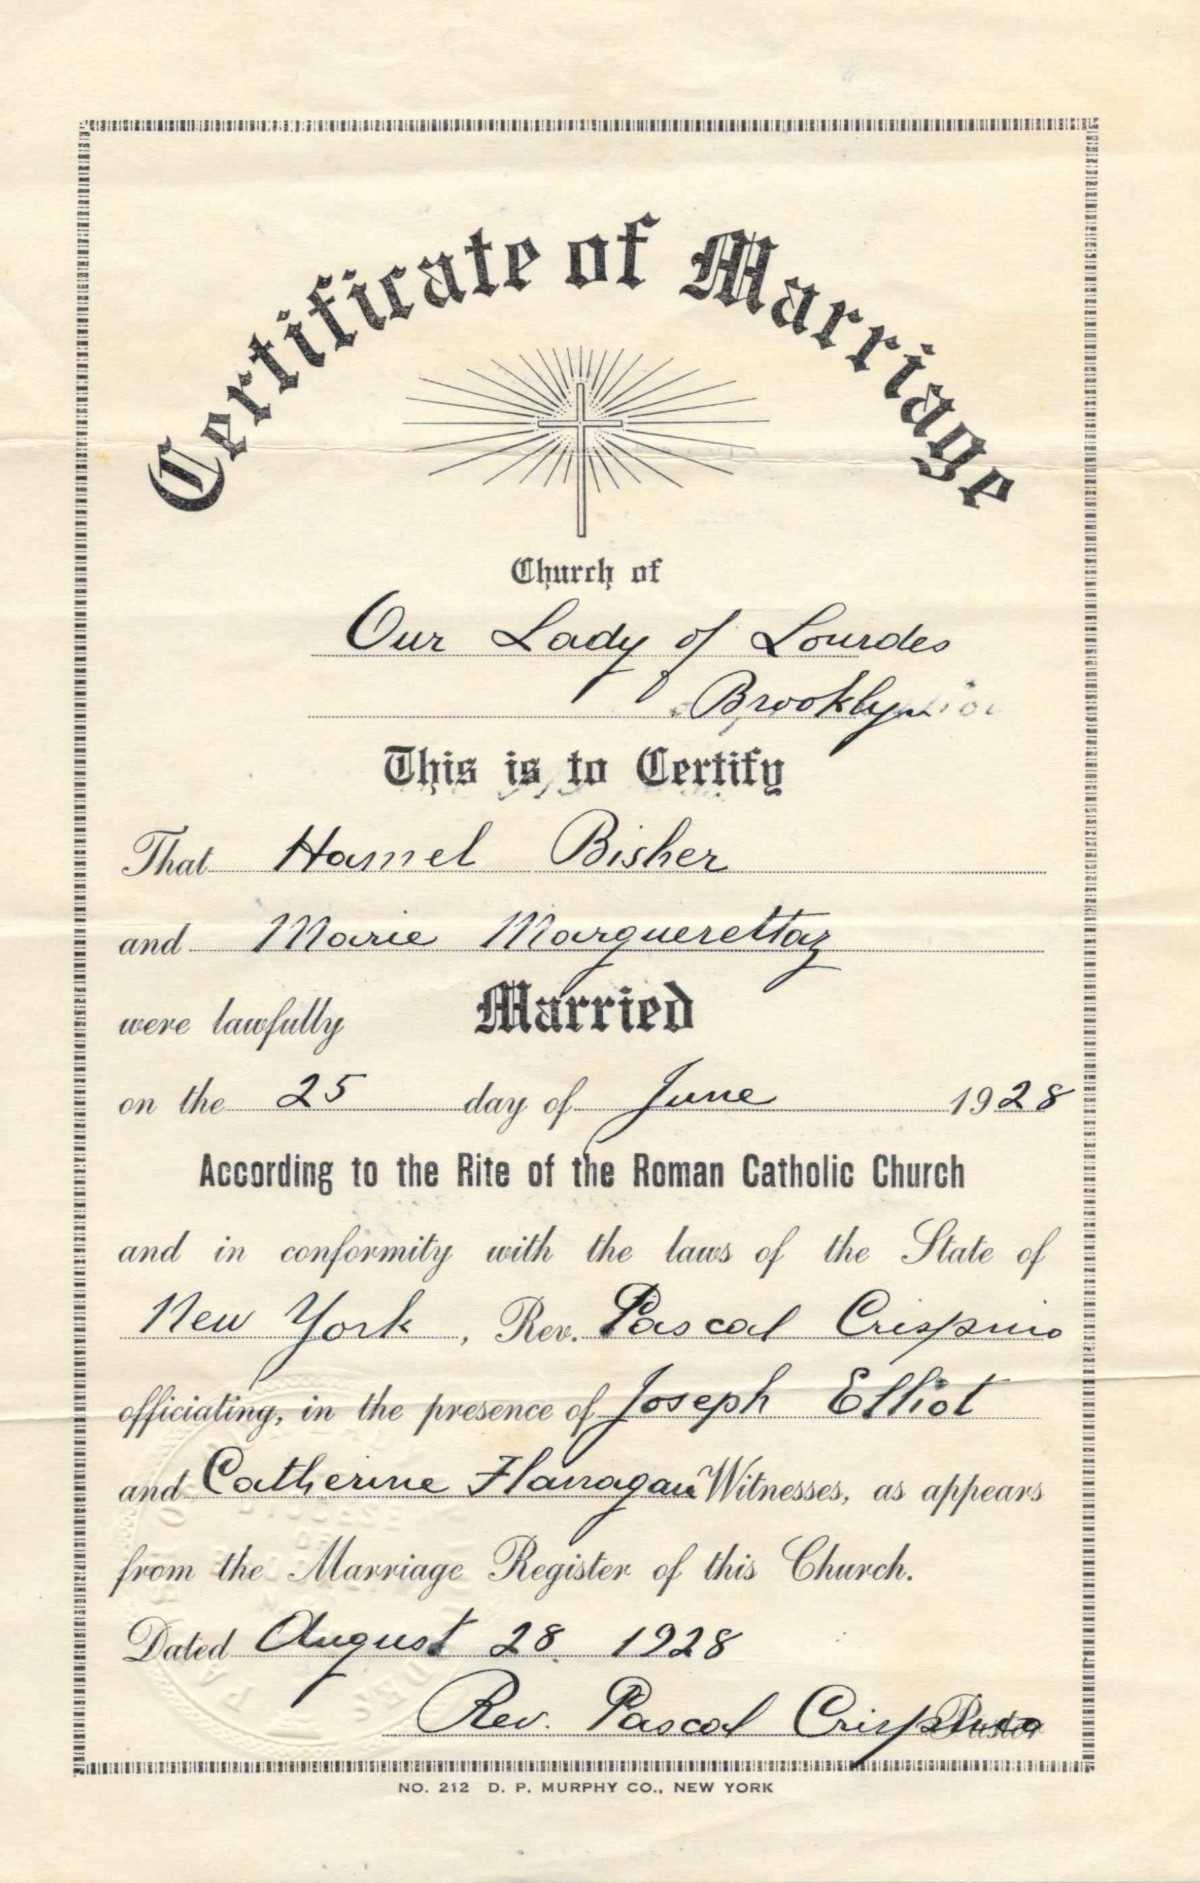 Certificate of Marriage
Church of
Our Lady of Lourdes
Brooklyn
This is to Certify
That Hamel Bisher
and Marie Marguerettaz
were lawfully Married
on the 25 day of June 1928
According to the Rite of the Roman Catholic Church
and in conformity with the laws of the State of
New York, Rev. Pascal Crispino
officiating, in the presence of Joseph Elliot
and Catherine Flanagan Witnesses, as appears
from the Marriage Register of this Church.
Dated August 28 1928
Rev. Pascal Crispino Pastor
NO. 212 D. P. MURPHY CO., NEW YORK